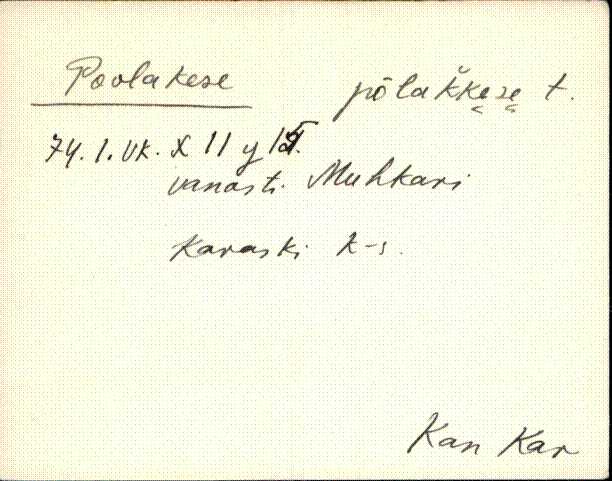 Poolakese pōlak̆kese t.
74. I. vk. X 11 y 15.
vanasti Muhkari
Karaski k-s.
Kan Kar